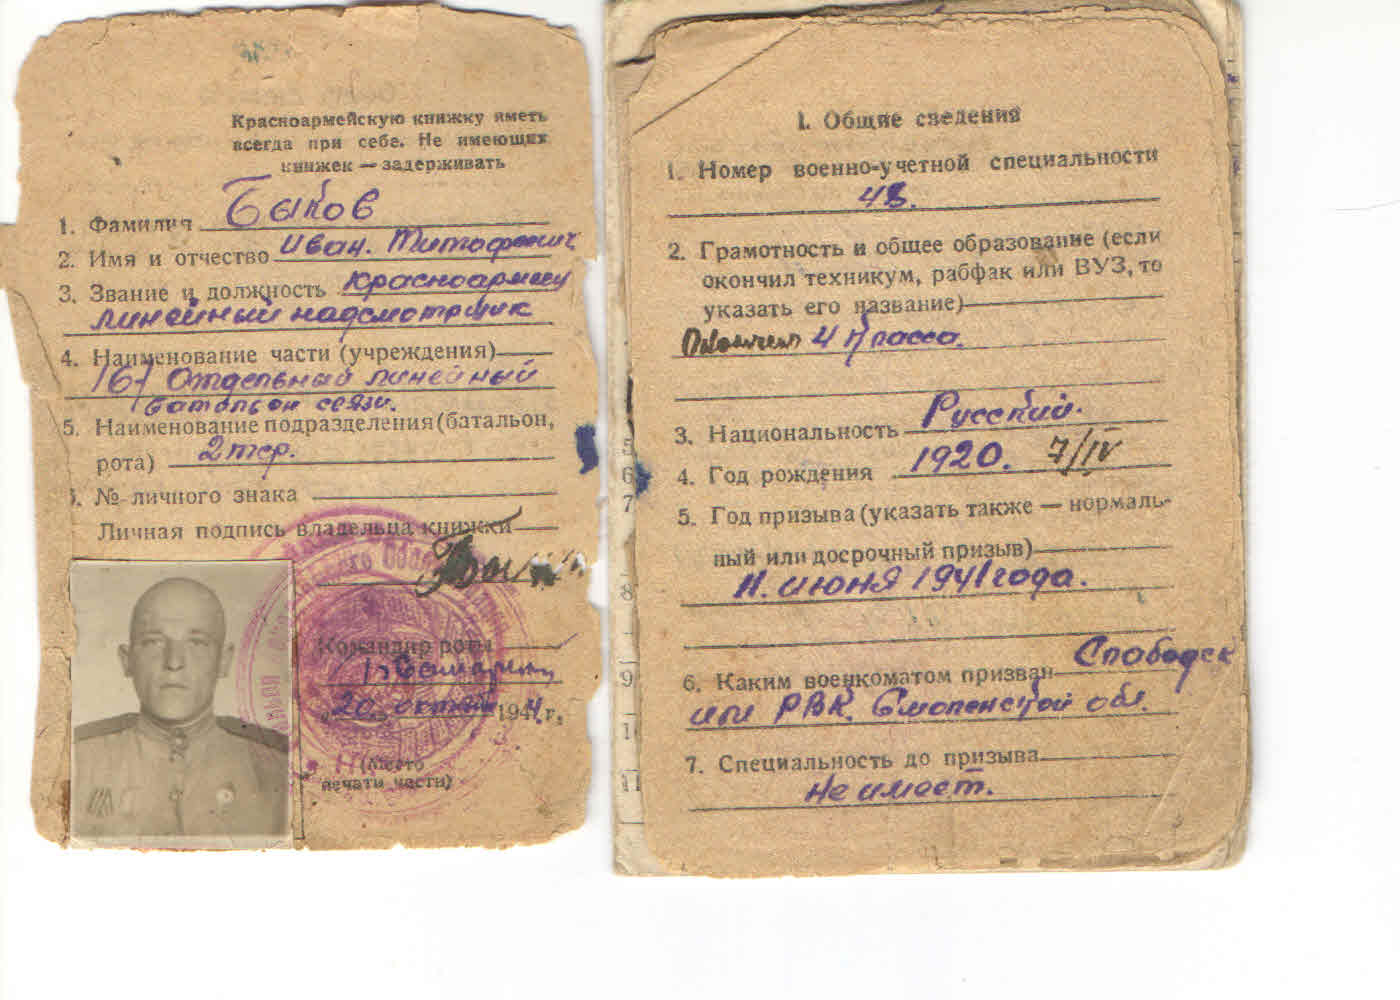 Красноармейскую книжку иметь
всегда при себе. Не имеющих
книжек — задерживать
1. Фамилия Быков
2. Имя и отчество Иван. Титофеевич
3. Звание и должность Красноармеец
линейный надсмотрщик
4. Наименование части (учреждения)
167 Отдельный линейный
батальон связи.
5. Наименование подразделения (батальон,
рота) 2 тср.
№ личного знака
Личная подпись владельца книжки
Командир роты
"20" октяб 1944 г.
(Место
печати части)
I. Общие сведения
1. Номер военно-учетной специальности
48.
2. Грамотность и общее образование (если
окончил техникум, рабфак или ВУЗ, то
указать его название)
4 класса.
3. Национальность Русский.
4. Год рождения 1920. 7/IV
5. Год призыва (указать также — нормаль-
ный или досрочный призыв)
11. июня 1941 года.
6. Каким военкоматом призван Слободск
им РВК. Смоленской обл.
7. Специальность до призыва
не имеет.
6
7
8
9
11